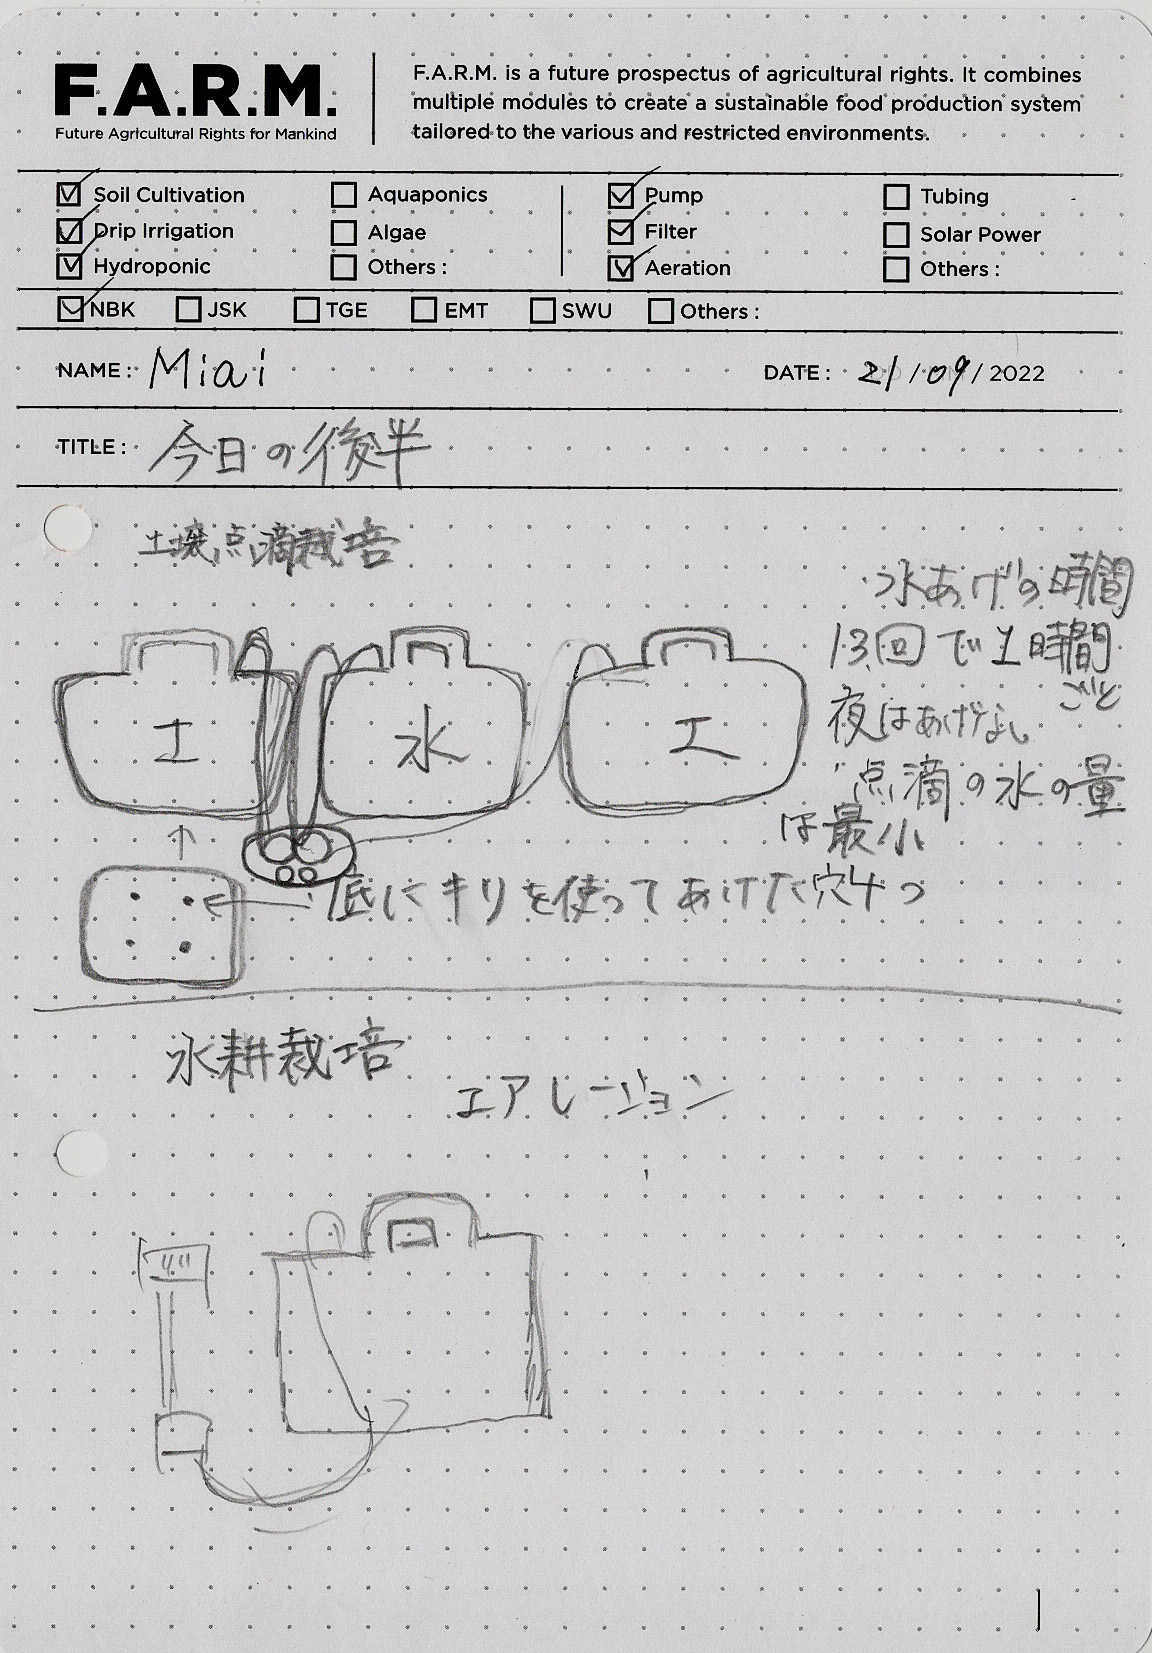 F.A.R.M.
Future Agricultural Rights for Mankind
F.A.R.M. is a future prospectus of agricultural rights. It combines
multiple modules to create a sustainable food production system
tailored to the various and restricted environments.
Soil Cultivation Aquaponics Pump Tubing
Drip Irrigation Algae Filter Solar Power
Hydroponic Others : Aeration Others :
NBK JSK TGE EMT SWU Others :
NAME : Miai DATE : 21/09/2022
TITLE : 今日の後半
土壌点滴栽培
・水あげの時間
13回で1時間
ごと
夜はあげない
・点滴の水の量
は最小
土 水 土
底にキリを使ってあけた穴4つ
水耕栽培
エアレーション